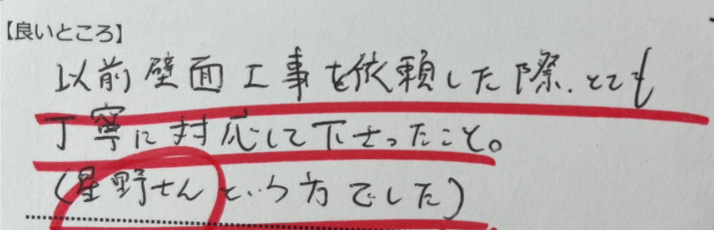 【良いところ】
以前壁面工事を依頼した際、とても
丁寧に対応して下さったこと。
(星野さんという方でした)